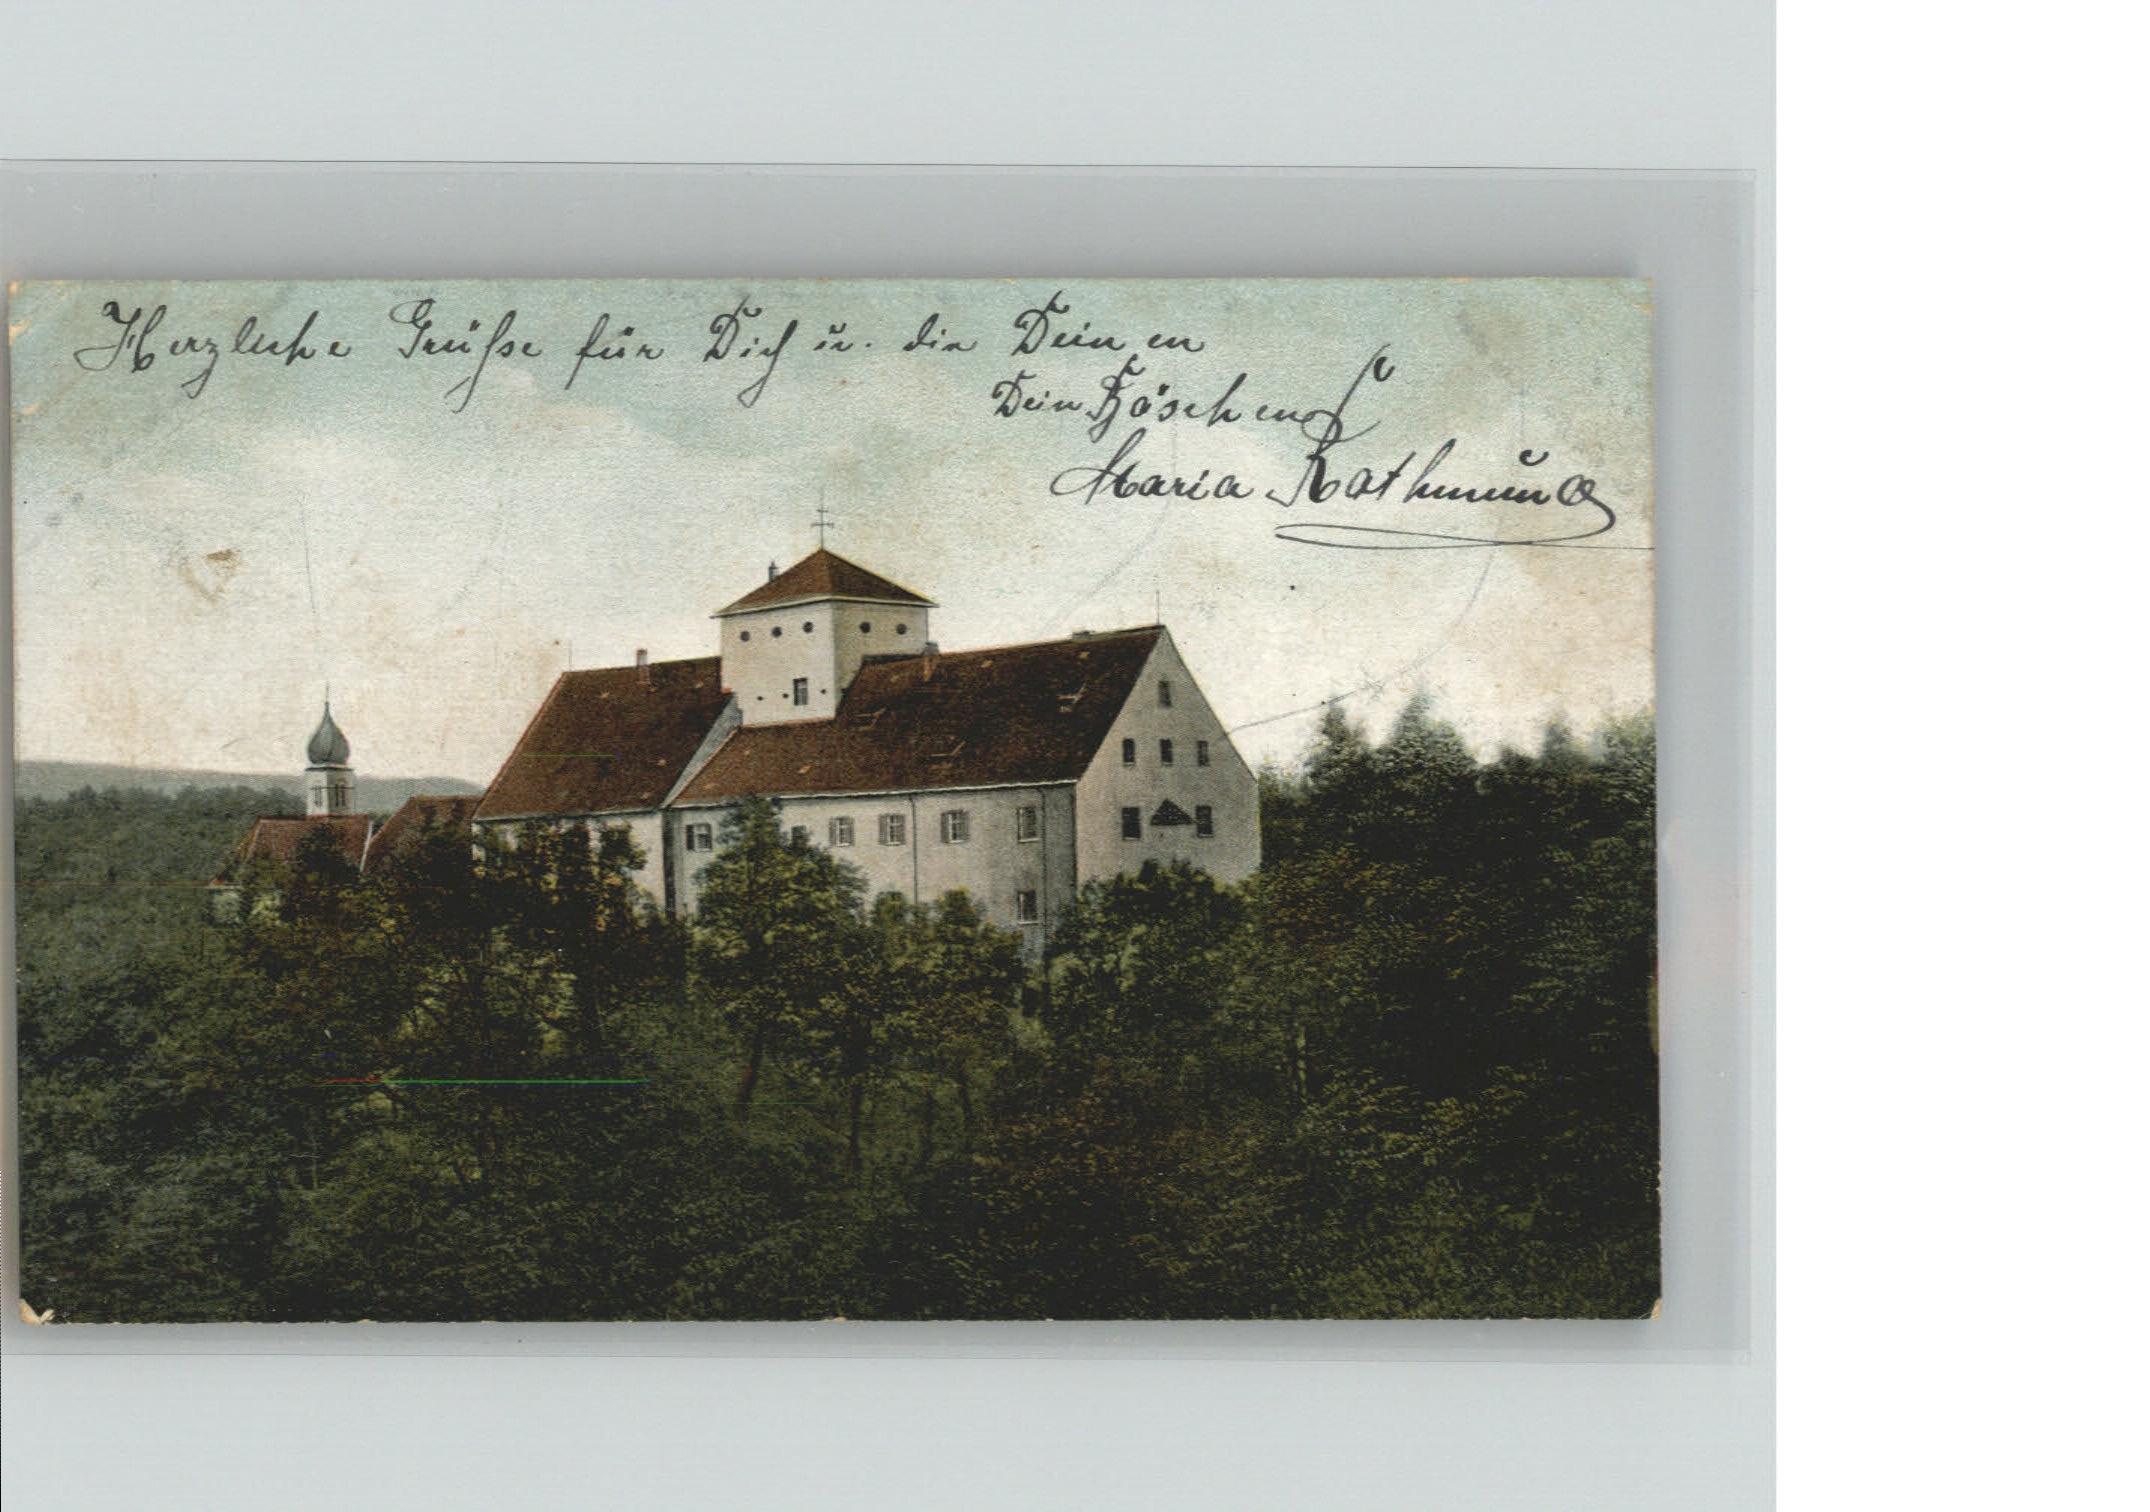 Herzliche Grüße für Dich u. die Deinen
Dein Bäschen
Maria Rothmund